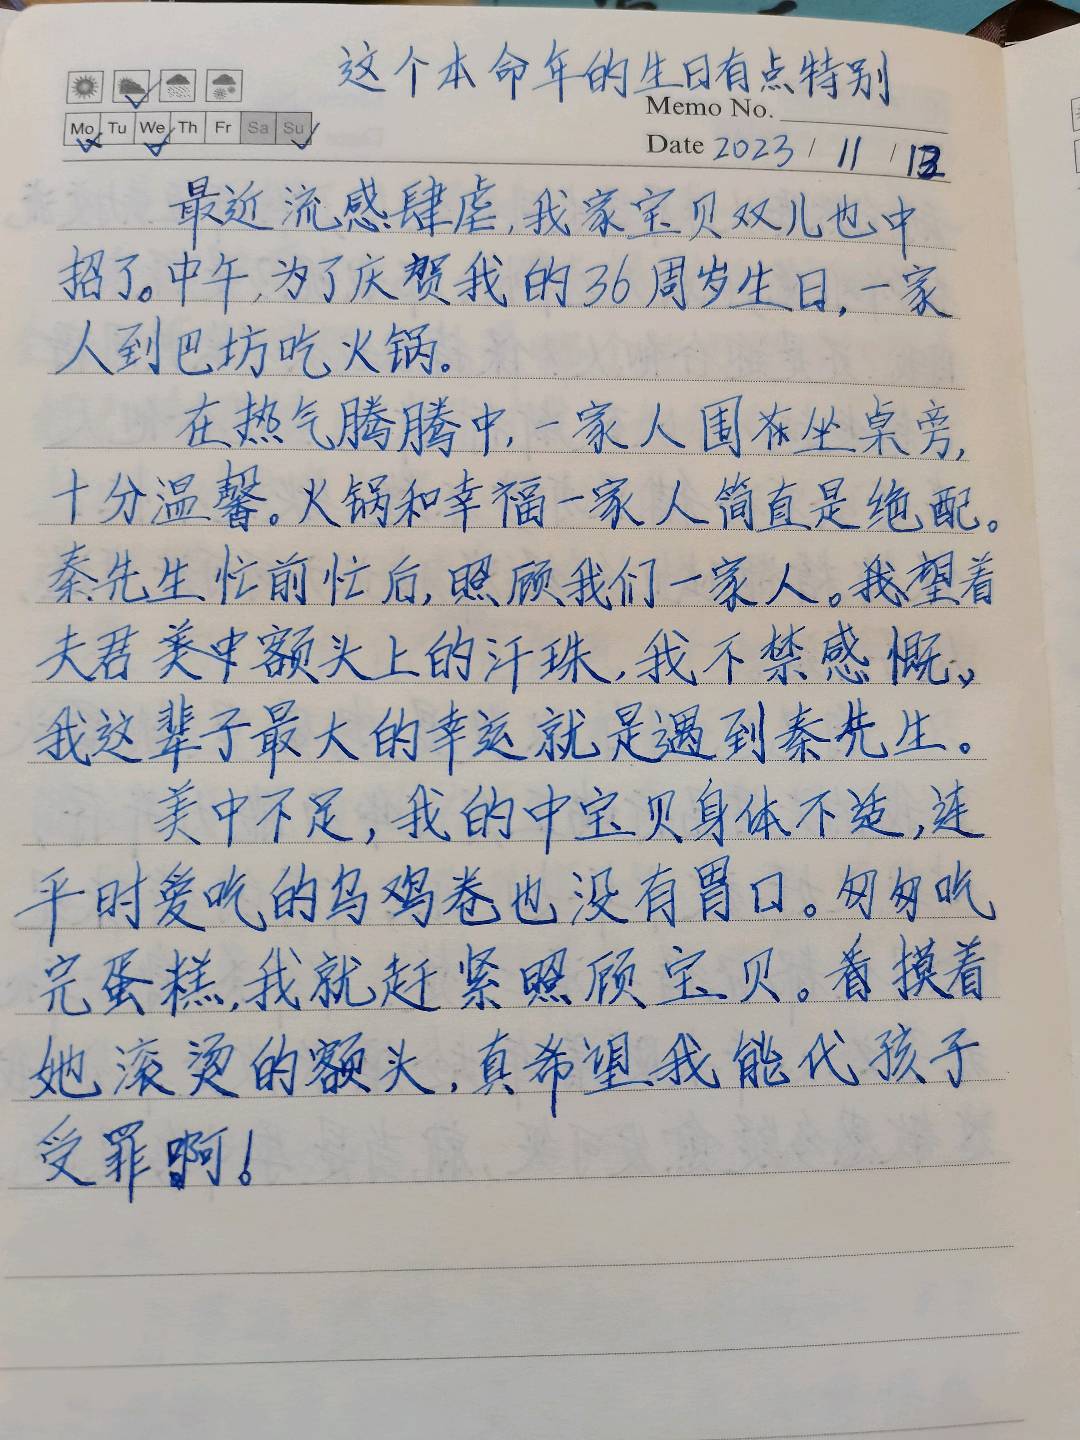 这个本命年的生日有点特别
Memo No.
Mo Tu We Th Fr Sa Su
Date 2023 / 11 /
最近流感肆虐,我家宝贝双儿也中
招了。中午,为了庆贺我的36周岁生日,一家
人到巴坊吃火锅。
在热气腾腾中,一家人围在坐桌旁,
十分温馨。火锅和幸福一家人简直是绝配。
秦先生忙前忙后,照顾我们一家人。我望着
夫君美中额头上的汗珠,我不禁感慨,
我这辈子最大的幸运就是遇到秦先生。
美中不足,我的中宝贝身体不适,连
平时爱吃的乌鸡卷也没有胃口。匆匆吃
完蛋糕,我就赶紧照顾宝贝。看摸着
她滚烫的额头,真希望我能代孩子
受罪啊!